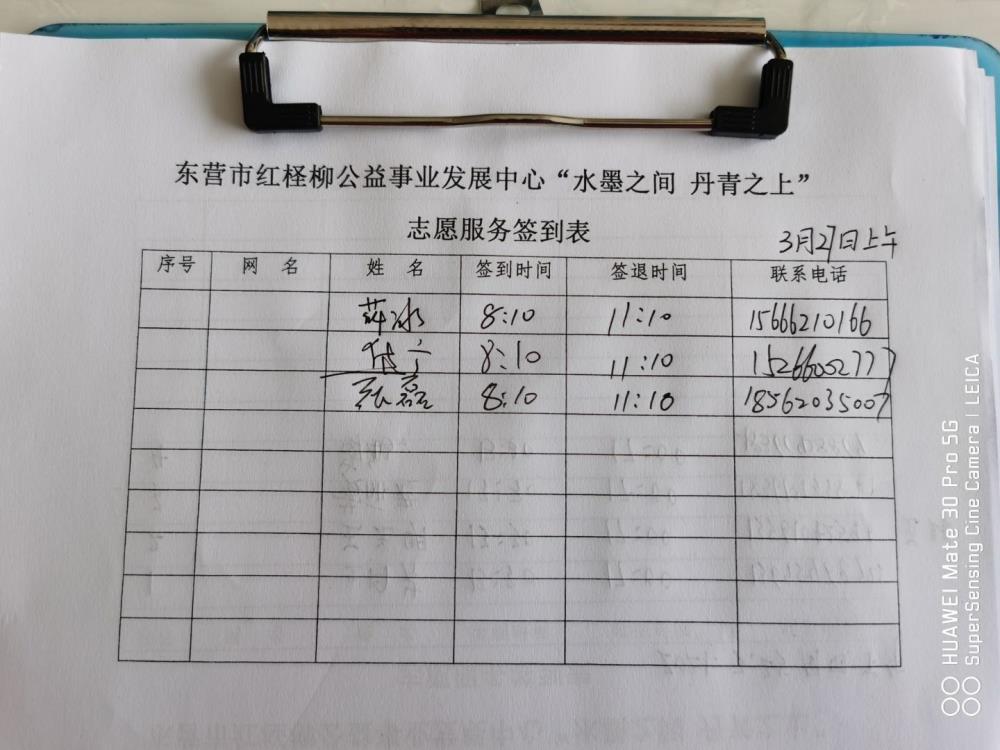 东营市红柽柳公益事业发展中心“水墨之间 丹青之上”
志愿服务签到表
3月27日上午
序号 网 名 姓 名 签到时间 签退时间 联系电话
薛冰 8:10 11:10 15666210166
8:10 11:10 15266002777
张磊 8:10 11:10 18562035007
HUAWEI Mate 30 Pro 5G
SuperSensing Cine Camera | LEICA